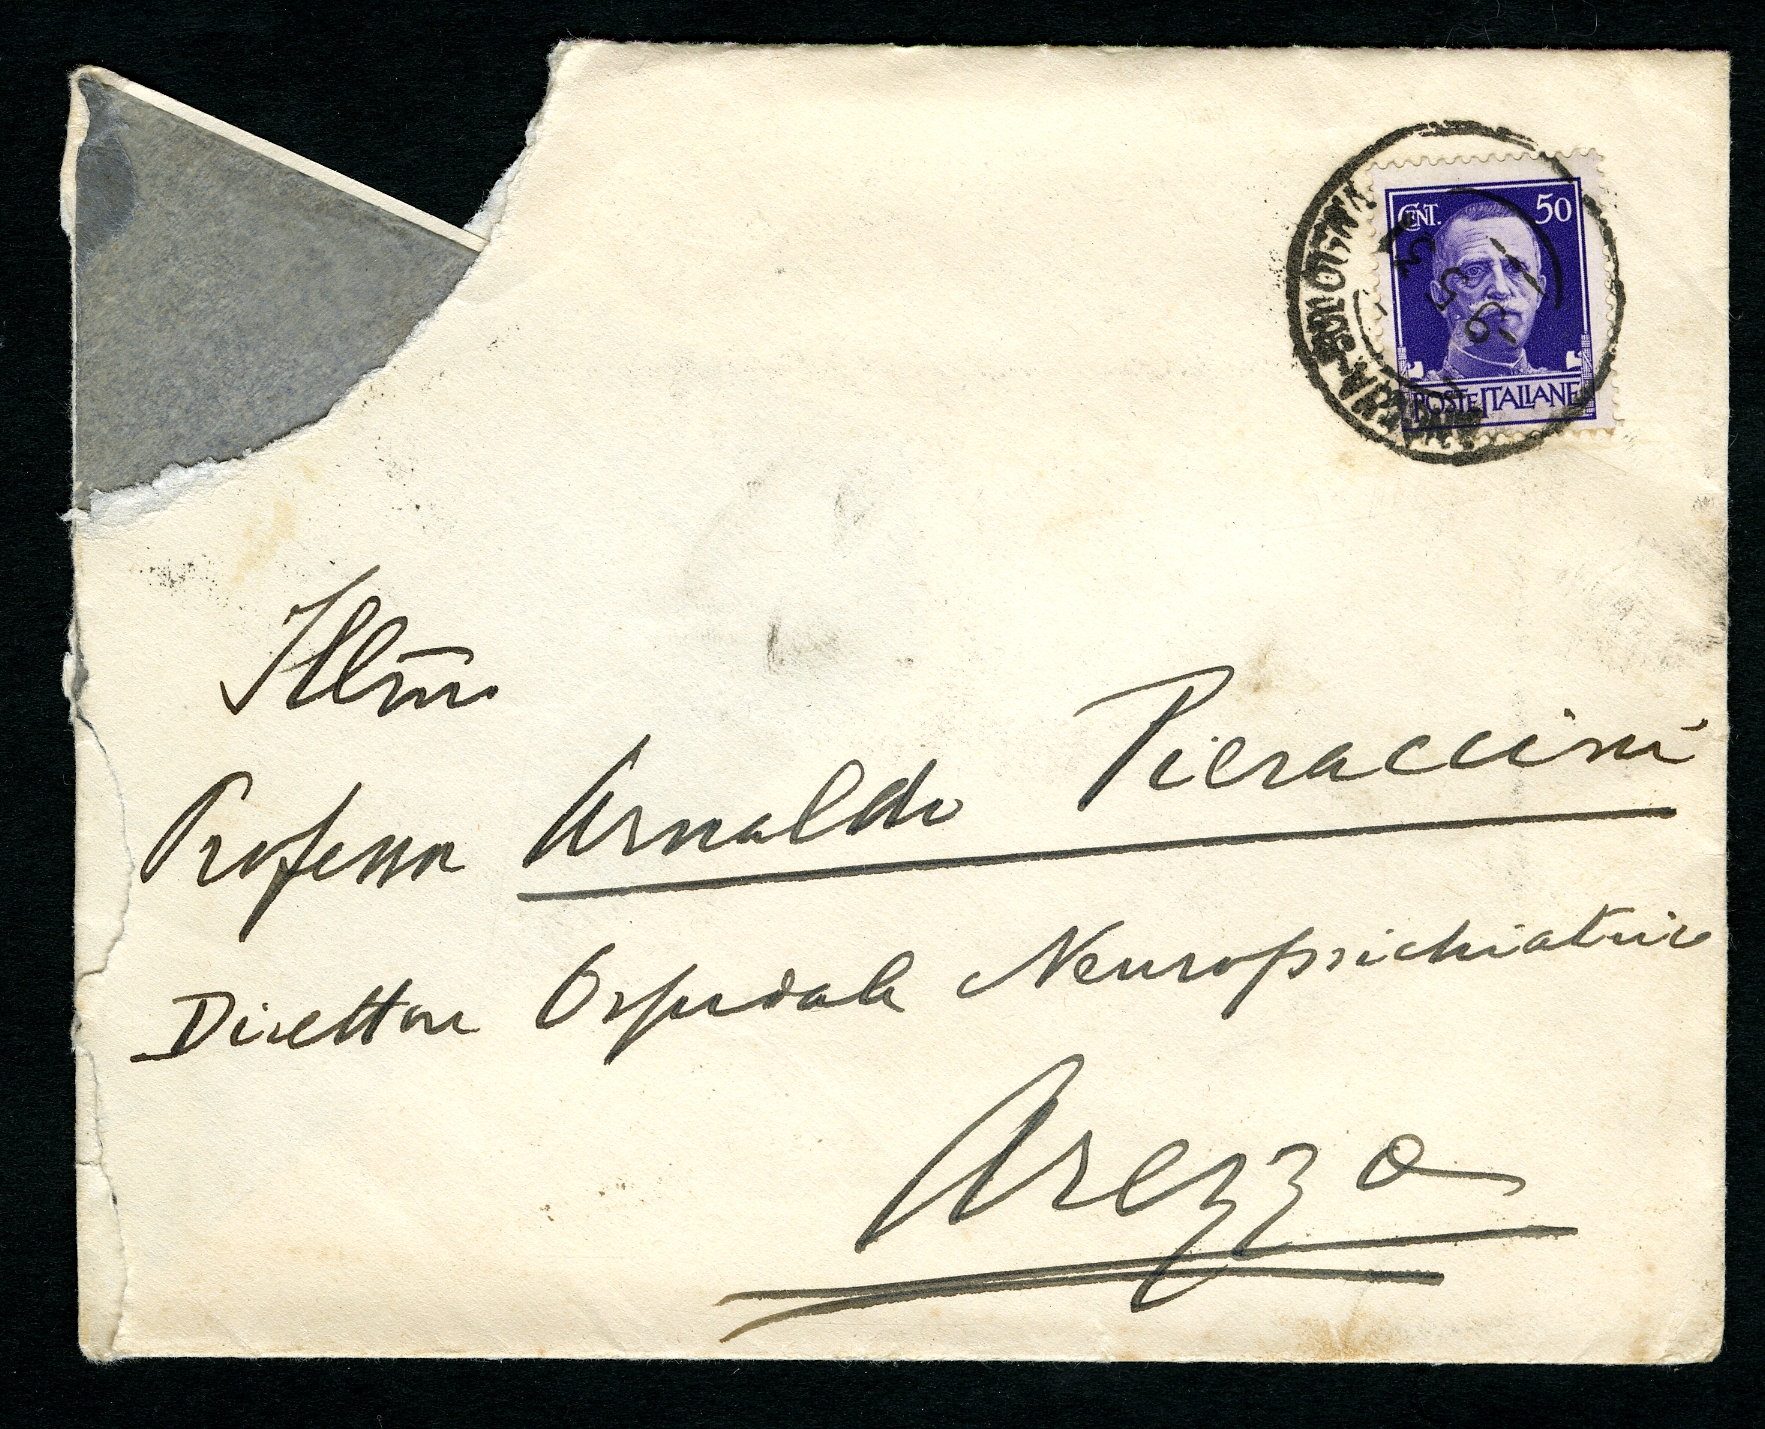 CENT. 50
POSTE ITALIANE
Illm̄o
Professor Arnaldo Pieraccini
Direttore Ospedale Neuropsichiatrico
Arezzo